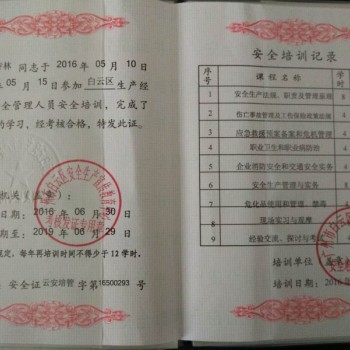 林 同志于 2016 年 05 月 10 日
年 05 月 15 日参加 白云区 生产经
全管理人员安全培训，完成了
的学习，经考核合格，特发此证。
机关（盖章）：
日期： 2016 年 06 月 30 日
期至： 2019 年 06 月 29 日
规定，每年再培训时间不得少于 12 学时。
号：安全证 云安培管 字第 16500293 号
安全培训记录
序号 课 程 名 称
1 安全生产法规、职责及管理基础 8
2 伤亡事故管理及工伤保险政策法规 4
3 应急救援预案备案和危机管理 4
4 职业卫生和职业病防治 4
5 企业消防安全和交通安全实务 4
6 安全生产管理与实务 8
7 危化品使用和管理、 4
8 现场实习与观摩
9 经验交流、探讨与考试 4
培训单位（盖章）
培训日期：